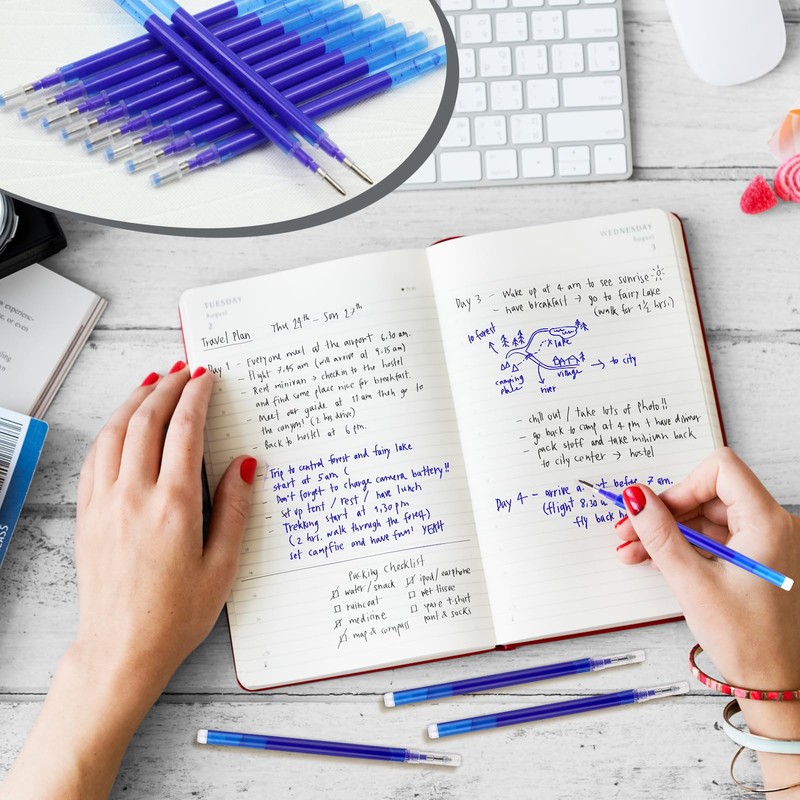 TUESDAY
August
2
Travel Plan
Thu 24th - Son 27th
Day 1 - Everyone meet at the airport 6.30 am.
- flight 7.45 am (will arrive at 9.15 am)
- Rest minivan → checkin to the hostel
and find some place nice for breakfast.
- Meet our guide at 11 am then go to
the canyon! (2 hrs drive)
- Back to hostel at 6 pm.
- Trip to central forest and fairy lake
start at 5 am (
Don't forget to change camera battery!!
- set up tent / rest / have lunch
- Trekking start at 1.30 pm
(2 hrs. walk through the forest)
set campfire and have fun! YEAH
Packing Checklist
water/snack
raincoat
medicine
map & compass
ipod/earphone
wet tissue
spare t-shirt
pant & socks
WEDNESDAY
August
3
Day 3 - Wake up at 4 am to see sunrise
- have breakfast → go to fairy Lake
(walk for 1½ hrs.)
to forest
X lake
camping
place
village
river
→ to city
- chill out / take lots of photo!!
- go back to camp at 4 pm & have dinner
- pack stoff and take minivan back
to city center → hostel
Day 4 - arrive before 7 am.
(flight 8.30
fly back
experience-
or even